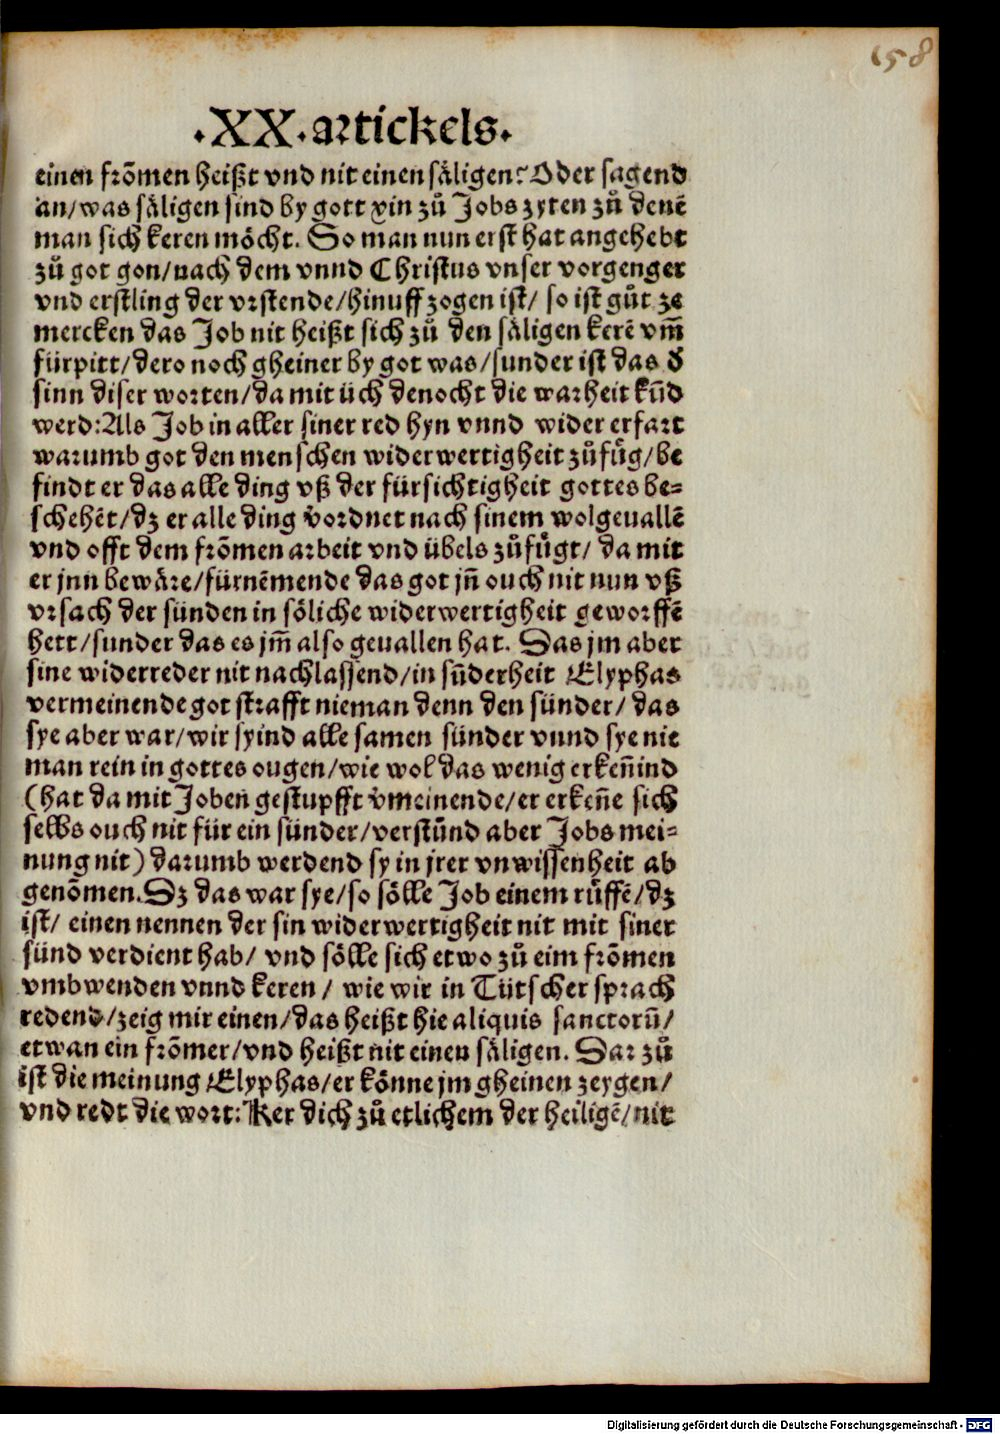 158
·XX·artickels·
einen frõmen heißt vnd nit einen säligen? Oder sagend
an/was säligen sind by gott xin zů Jobs zyten zů denẽ
man sich keren möcht. So man nun erst hat angehebt
zů got gon/nach dem vnnd Christus vnser vorgenger
vnd erstling der vrstende/hinuff zogen ist/ so ist gůt ze
mercken das Job nit heißt sich zů den säligen kerẽ vm̃
fürpitt/dero noch gheiner by got was/sunder ist das d̕
sinn diser worten/da mit üch denocht die warheit kũd
werd:Als Job in aller siner red hyn vnnd wider erfart
warumb got den menschen widerwertigheit zůfüg/be
findt er das alle ding vß der fürsichtigheit gottes be-
schehẽt/dz er alle ding v̄ordnet nach sinem wolgeuallẽ
vnd offt dem frõmen arbeit vnd übels zůfügt/ da mit
er jnn bewäre/fürnẽmende das got jñ ouch nit nun vß
vrsach der sünden in söliche widerwertigheit geworffẽ
hett/sunder das es jm̃ also geuallen hat. Das jm aber
sine widerreder nit nachlassend/in sũderheit Elyphas
vermeinende got strafft nieman denn den sünder/ das
sye aber war/wir syind alle samen sünder vnnd sye nie
man rein in gottes ougen/wie wol das wenig erkeñind
(hat da mit Joben gestupfft v̄meinende/er erkeñe sich
selbs ouch nit für ein sünder/verstũnd aber Jobs mei-
nung nit) darumb werdend sy in jrer vnwissenheit ab
genõmen. Dz das war sye/so sölle Job einem rüffẽ/dz
ist/ einen nennen der sin widerwertigheit nit mit siner
sünd verdient hab/ vnd sölle sich etwo zů eim frõmen
vmbwenden vnnd keren/ wie wir in Tütscher sprach
redend/zeig mir einen/das heißt hie aliquis sanctorũ/
etwan ein frõmer/vnd heißt nit einen säligen. Dar zů
ist die meinung Elyphas/er könne jm gheinen zeygen/
vnd redt die wort: Ker dich zů etlichem der heiligẽ/nit
Digitalisierung gefördert durch die Deutsche Forschungsgemeinschaft - DFG